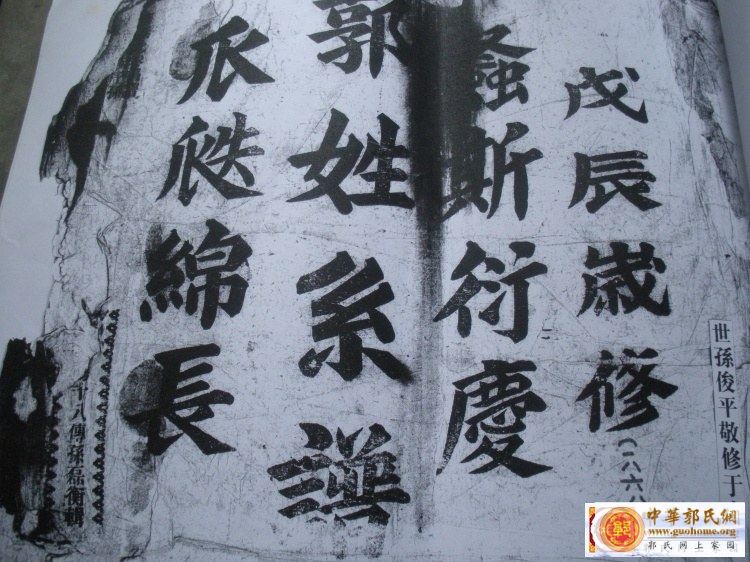 世孫俊平敬修于
戊辰歲修
螽斯衍慶
郭姓系譜
瓜瓞綿長
十八傳孫磊衡輯
中華郭氏網
www.guohome.org
郭氏网上家园